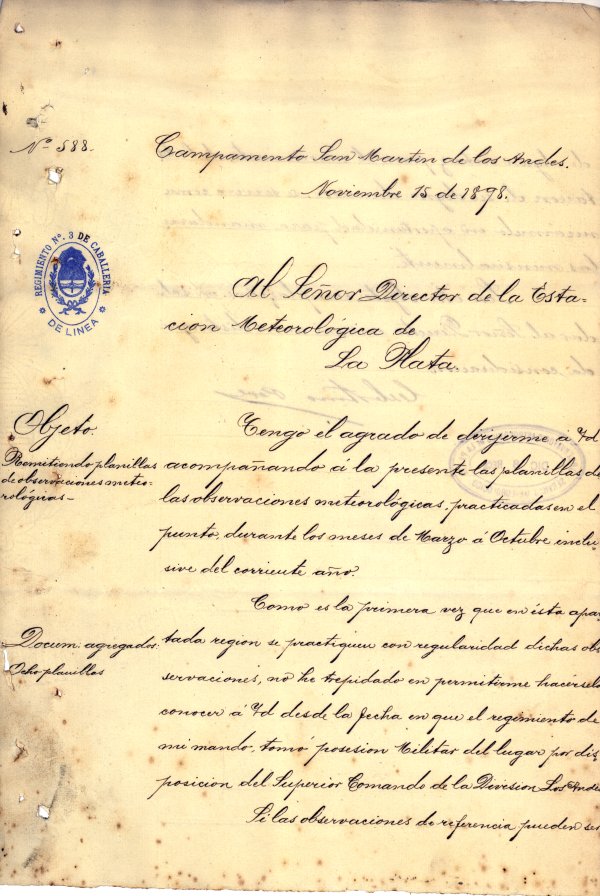 Nº 588.
Campamento San Martin de los Andes.
Noviembre 15 de 1898.
REGIMIENTO Nº. 3 DE CABALLERIA
DE LINEA
Al Señor Director de la Esta-
cion Meteorológica de
La Plata.
Objeto.
Remitiendo planillas
de observaciones meteo-
rológicas-
Tengo el agrado de dirijirme á Vd
acompañando á la presente las planillas de
las observaciones meteorológicas, practicadas en el
punto, durante los meses de Marzo á Octubre inclu-
sive del corriente año.
Como es la primera vez que en ésta apar-
Docum: agregados:
Ocho planillas
tada region se practiquen con regularidad dichas ob
servaciones, no he trepidado en permitirme hacérselo
conocer á Vd desde la fecha en que el regimiento de
mi mando, tomó posesion Militar del lugar por dis
posicion del Superior Comando de la Division Los Andes
Si las observaciones de referencia pueden ser